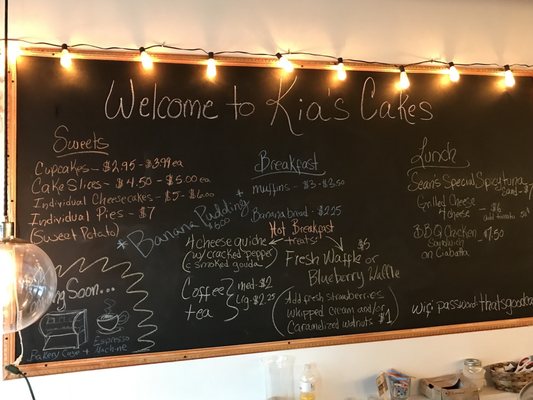 Welcome to Kia's Cakes
Sweets
Cupcakes - $2.95 - $3.99 ea
Cake Slices - $4.50 - $5.00 ea
Individual Cheesecakes - $5 - 6.00
Individual Pies - $7
(Sweet Potato)
* Banana Pudding *
$6.00
ing Soon...
Bakery Case +
Espresso
Machine
Breakfast
Muffins - $3 - $3.50
Banana bread - $2.25
Hot Breakfast
treats:
4 cheese quiche
(w/ cracked pepper
& smoked gouda
$5
Fresh Waffle or
Blueberry Waffle
Coffee
tea
med - $2
lrg - $2.25
(Add fresh strawberries
whipped cream and/or
Caramelized walnuts $1)
Lunch
Sean's Special Spicy tuna
Sand - $7
Grilled Cheese
4 cheese - $6
add tomato
BBQ Chicken - $7.50
Sandwich
on Ciabatta
wifi password: thatsgood